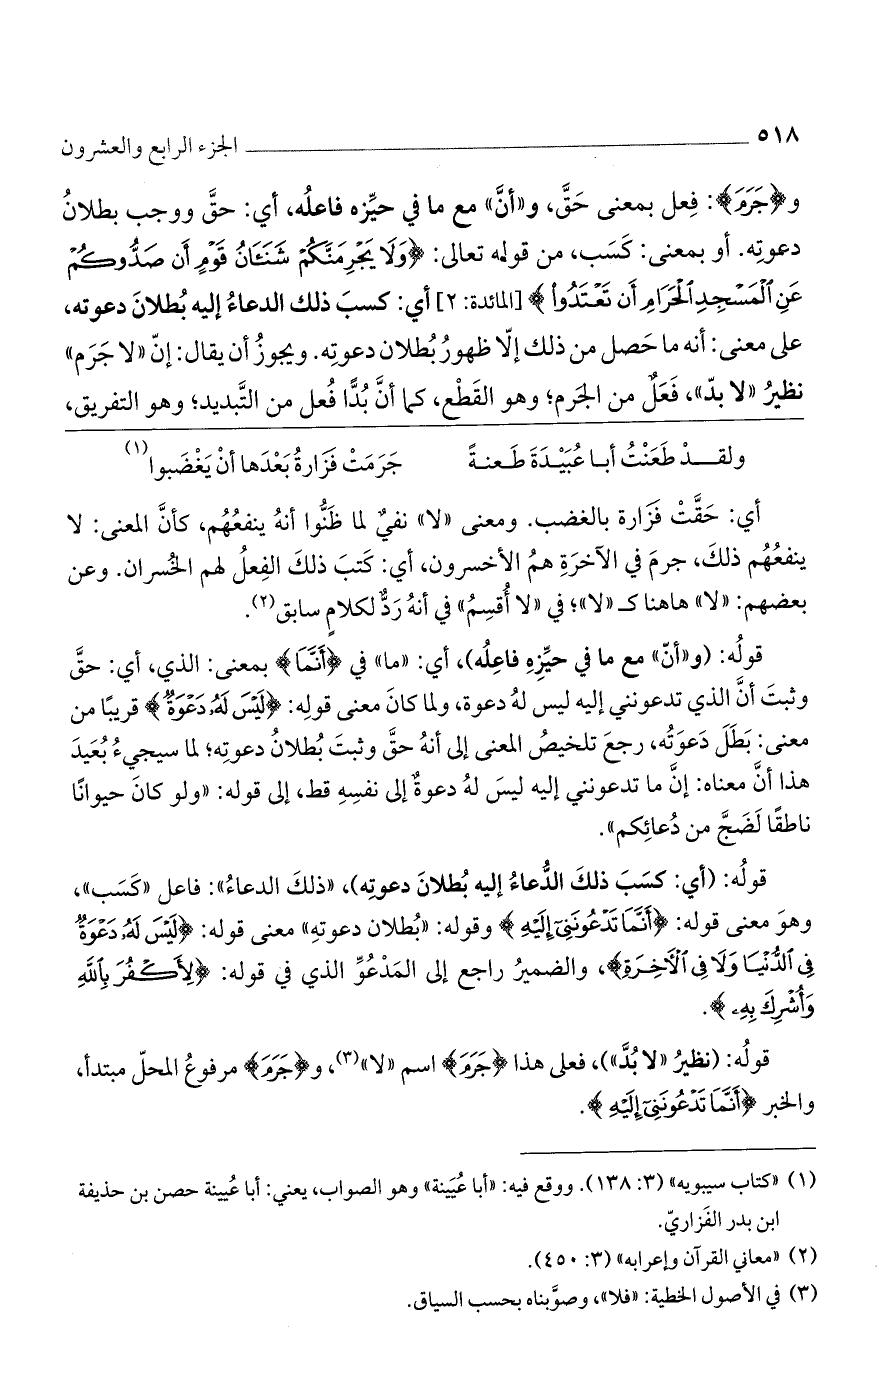 ٥١٨ الجزء الرابع والعشرون
و﴿جَرَمَ﴾: فِعل بمعنى حَقَّ، و«أنَّ» مع ما في حيِّزه فاعلُه، أي: حقَّ ووجب بطلانُ
دعوتِه. أو بمعنى: كَسَب، من قوله تعالى: ﴿وَلَا يَجْرِمَنَّكُمْ شَنَئَانُ قَوْمٍ أَن صَدُّوكُمْ
عَنِ الْمَسْجِدِ الْحَرَامِ أَن تَعْتَدُوا﴾ [المائدة: ٢] أي: كسبَ ذلك الدعاءُ إليه بُطلانَ دعوته،
على معنى: أنه ما حَصل من ذلك إلّا ظهورُ بُطلان دعوتِه. ويجوزُ أن يقال: إنّ «لا جَرَم»
نظيرُ «لا بدّ»، فَعَلٌ من الجَرم؛ وهو القَطْع، كما أنَّ بُدًّا فُعل من التَّبديد؛ وهو التفريق،
ولقـــدْ طَعَنْتُ أبـا عُبَيْـدَةَ طَـعنـةً جَرَمَتْ فَزَارةُ بَعْدَها أنْ يَغْضَبوا(١)
أي: حَقَّتْ فَزَارة بالغضب. ومعنى «لا» نفيٌ لما ظَنُّوا أنهُ ينفعُهُم، كأنَّ المعنى: لا
ينفعُهُم ذلكَ، جرمَ في الآخرَةِ همُ الأخسرون، أي: كَتبَ ذلكَ الفِعلُ لهم الخُسران. وعن
بعضهم: «لا» هاهنا كـ «لا»؛ في «لا أُقسِمُ» في أنهُ رَدٌّ لكلامٍ سابق(٢).
قولُه: (و«أنّ» مع ما في حيِّزِهِ فاعِلُه)، أي: «ما» في ﴿أَنَّمَا﴾ بمعنى: الذي، أي: حقَّ
وثبتَ أنَّ الذي تدعونني إليه ليس لهُ دعوة، ولما كانَ معنى قولِه: ﴿لَيْسَ لَهُ دَعْوَةٌ﴾ قريبًا من
معنى: بَطَلَ دَعوَتُه، رجعَ تلخيصُ المعنى إلى أنهُ حقَّ وثبتَ بُطلانُ دعوتِه؛ لما سيجيءُ بُعَيدَ
هذا أنَّ معناه: إنَّ ما تدعونني إليه ليسَ لهُ دعوةٌ إلى نفسِهِ قط، إلى قوله: «ولو كانَ حيوانًا
ناطقًا لَضَجَّ من دُعائِكم».
قولُه: (أي: كسَبَ ذلكَ الدُّعاءُ إليه بُطلانَ دعوتِه)، «ذلكَ الدعاءُ»: فاعل «كَسَب»،
وهوَ معنى قوله: ﴿أَنَّمَا تَدْعُونَنِي إِلَيْهِ﴾ وقوله: «بُطلان دعوتهِ» معنى قوله: ﴿لَيْسَ لَهُ دَعْوَةٌ
فِي الدُّنْيَا وَلَا فِي الْآخِرَةِ﴾، والضميرُ راجع إلى المَدْعُوِّ الذي في قوله: ﴿لِأَكْفُرَ بِاللَّهِ
وَأُشْرِكَ بِهِ﴾.
قولُه: (نظيرُ «لا بُدَّ»)، فعلى هذا ﴿جَرَمَ﴾ اسم «لا»(٣)، و﴿جَرَمَ﴾ مرفوعُ المحلّ مبتدأ،
والخبر ﴿أَنَّمَا تَدْعُونَنِي إِلَيْهِ﴾.
(١) «كتاب سيبويه» (٣: ١٣٨). ووقع فيه: «أبا عُيَينة» وهو الصواب، يعني: أبا عُيينة حصن بن حذيفة
ابن بدر الفَزاريّ.
(٢) «معاني القرآن وإعرابه» (٣: ٤٥٠).
(٣) في الأصول الخطية: «فلا»، وصوَّبناه بحسب السياق.